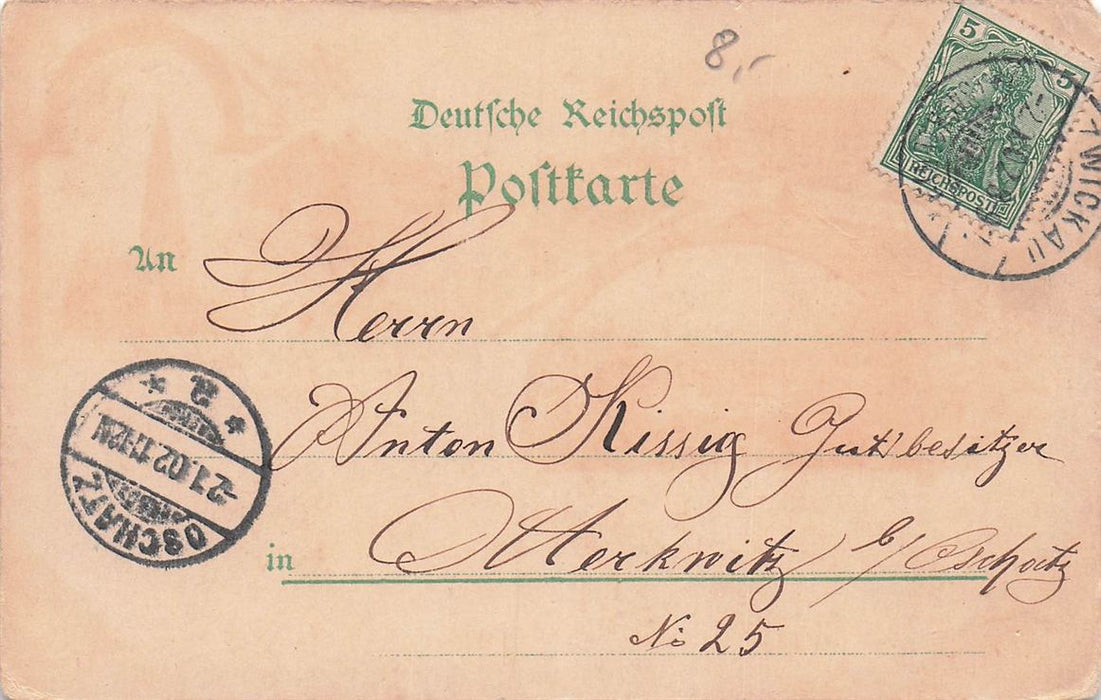 8,-
5 5
REICHSPOST
ZWICKAU
Deutsche Reichspost
Postkarte
An Herrn
Anton Kissig Gutsbesitzer
in Merkwitz b/Oschatz
No 25
OSCHATZ
-2.1.02.11-12V.
* a. *